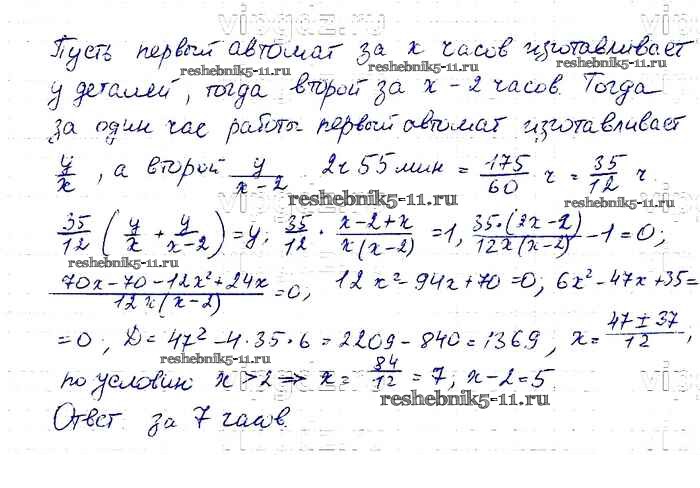 Пусть первый автомат за x часов изготавливает
y деталей, тогда второй за x - 2 часов. Тогда
за один час работы первый автомат изготавливает
y/x, а второй y/(x-2). 2ч 55 мин = 175/60 ч = 35/12 ч.
35/12 (y/x + y/(x-2)) = y; 35/12 · (x-2+x)/(x(x-2)) = 1, 35·(2x-2)/(12x(x-2)) - 1 = 0;
(70x - 70 - 12x² + 24x)/(12x(x-2)) = 0, 12x² - 94x + 70 = 0; 6x² - 47x + 35 =
= 0; D = 47² - 4·35·6 = 2209 - 840 = 1369, x = (47 ± 37)/12,
по условию x > 2 ⇒ x = 84/12 = 7; x - 2 = 5.
Ответ за 7 часов.
reshebnik5-11.ru
reshebnik5-11.ru
reshebnik5-11.ru
reshebnik5-11.ru
reshebnik5-11.ru
reshebnik5-11.ru
reshebnik5-11.ru